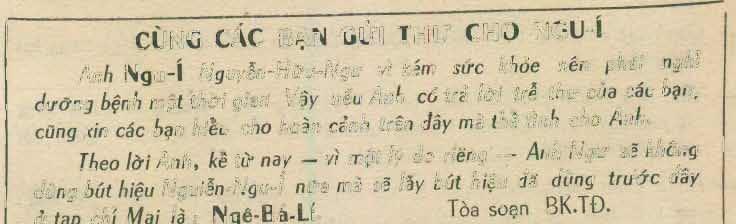 CÙNG CÁC BẠN GỬI THƯ CHO NGU-Í
Anh Ngu-Í Nguyễn-Hữu-Ngư vì kém sức khỏe nên phải nghỉ
dưỡng bệnh một thời gian. Vậy nếu Anh có trả lời trễ thư của các bạn,
cũng xin các bạn hiểu cho hoàn cảnh trên đây mà thể tình cho Anh.
Theo lời Anh, kể từ nay — vì một lý do riêng — Anh Ngư sẽ không
dùng bút hiệu Nguiễn-Ngu-Í nữa mà sẽ lấy bút hiệu đã dùng trước đây
ở tạp chí Mai là : Ngê-Bá-Lí.
Tòa soạn BK.TĐ.